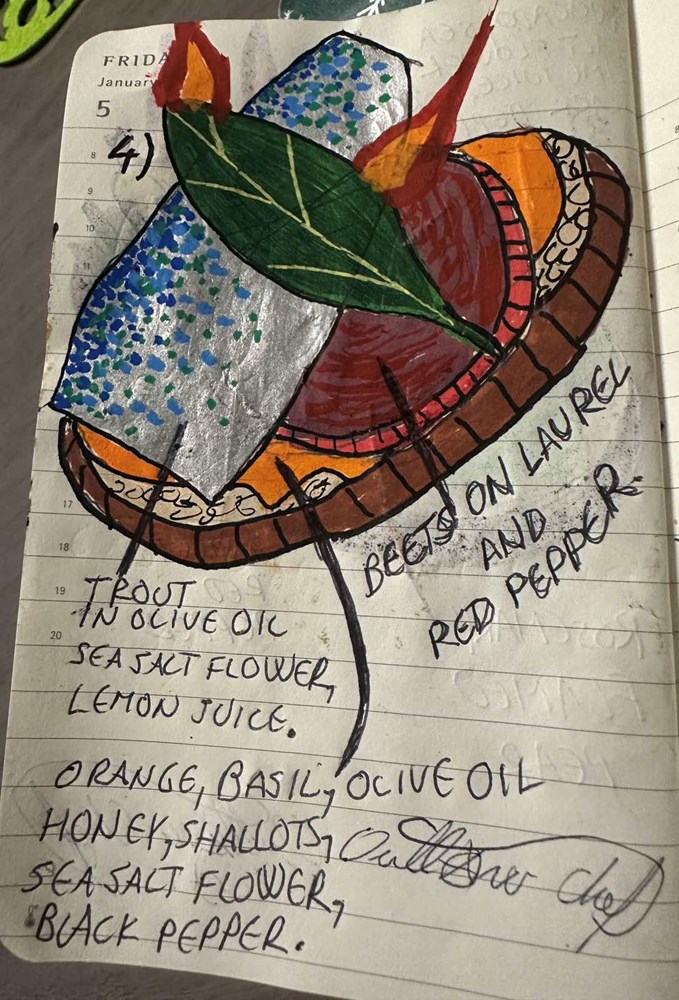 FRIDA
January
5
4)
8
9
10
11
17
18
19
20
BEETS ON LAUREL
AND
RED PEPPER.
TROUT
IN OLIVE OIL
SEA SALT FLOWER,
LEMON JUICE.
ORANGE, BASIL, OLIVE OIL
HONEY, SHALLOTS,
SEA SALT FLOWER,
BLACK PEPPER.
Chef